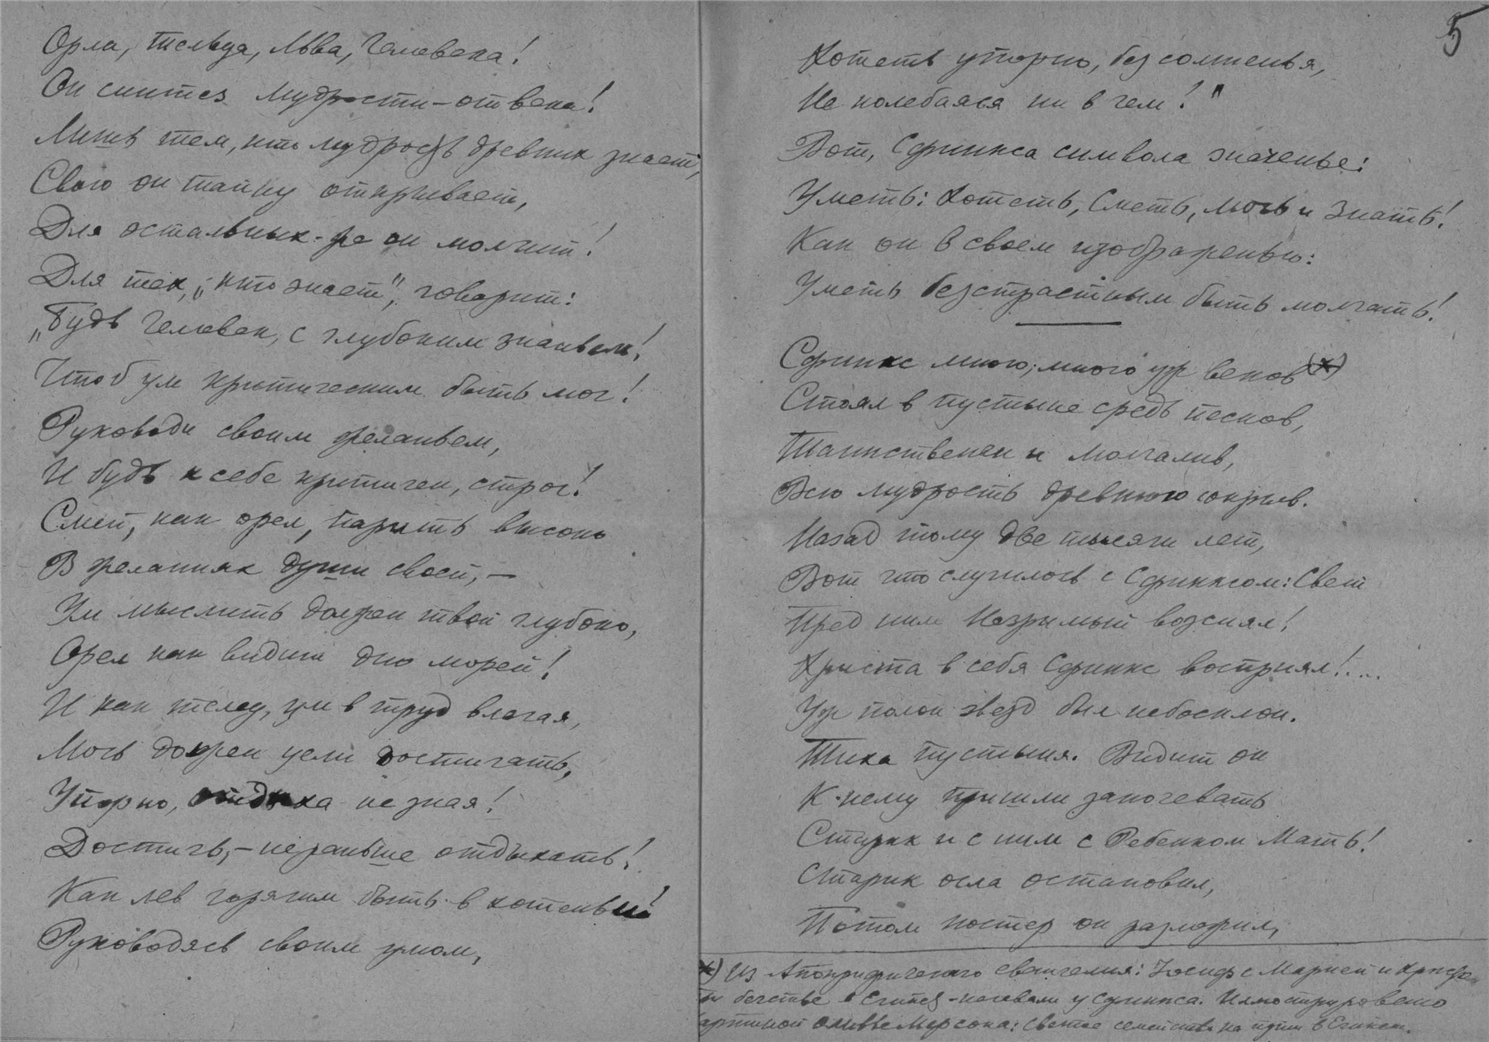 Орла, тельца, Льва, Человека!
Он синтез мудрости – от века!
Лишь тем, кто мудрость древних знает,
Свою он тайну открывает,
Для остальных-же он молчит!
Для тех, „кто знает", говорит:
„Будь Человек, с глубоким знаньем!
Чтоб ум критическим быть мог!
Руководи своим желаньем,
И будь к себе критичен, строг!
Смей, как орел, парить высоко
В желаниях души своей, –
Ум мыслить должен твой глубоко,
Орел как видит дно морей!
И как телец, ум в труд влагая,
Мочь должен цели достигать,
Упорно, отдыха не зная!
Достичь, – не раньше отдыхать!
Как лев горячим быть в хотеньи!
Руководясь своим умом,
5
Хотеть упорно, без сомненья,
Не колебаяся ни в чем!"
Вот, Сфинкса символа значенье:
Уметь: Хотеть, Сметь, мочь и Знать!
Как он в своем изображеньи:
Уметь безстрастным быть молчать!
Сфинкс много, много уж веков х)
Стоял в пустыне средь песков,
Таинственен и молчалив,
Всю мудрость древнюю сокрыв.
Назад тому две тысячи лет,
Вот что случилось с Сфинксом: Свет
Пред ним Незримый возсиял!
Христа в себя Сфинкс воспринял!....
Уж полон звезд был небосклон.
Тиха пустыня. Видит он
К-нему пришли заночевать
Старик и с ним с Ребенком Мать!
Старик осла остановил,
Потом костер он разложил,
х) Из Апокрифического евангелия: Иосиф с Марией и
бегстве в Египет - ночевали у Сфинкса. Иллюстрировано
картиной Оливье Мерсона: святое семейство на пути в Египет.